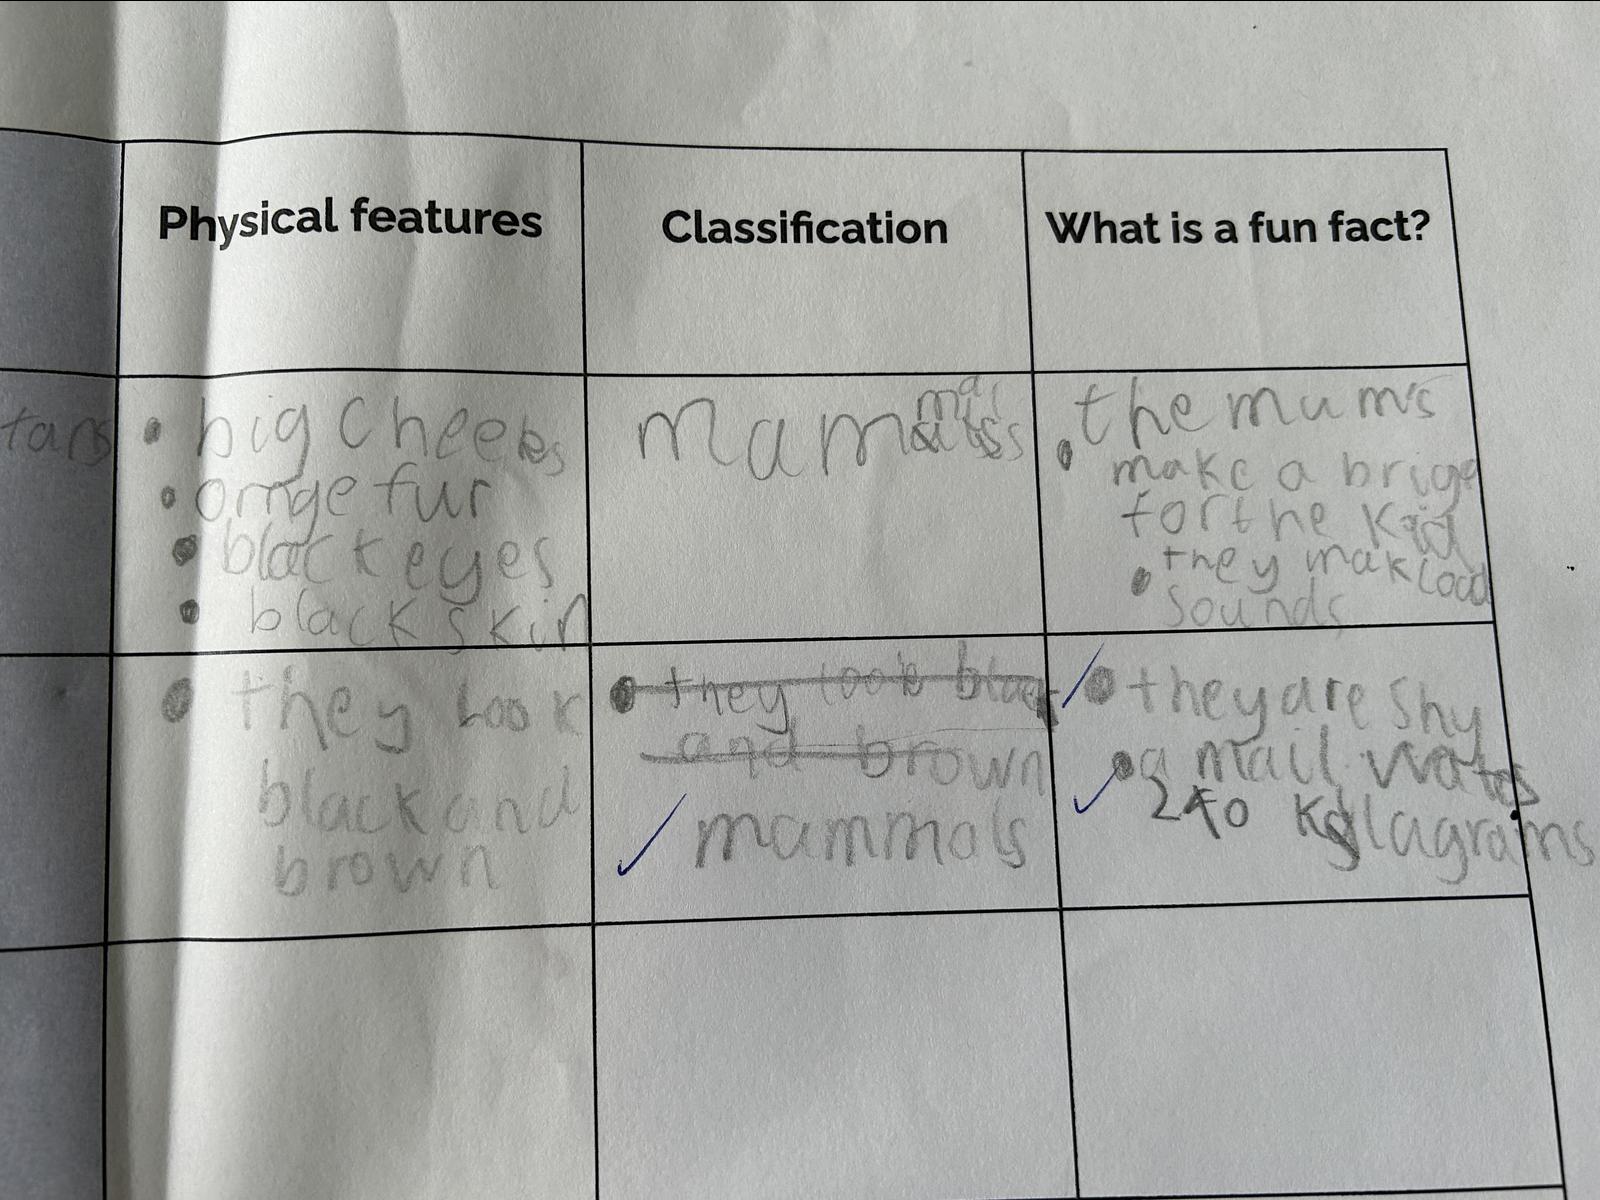 Physical features
Classification
What is a fun fact?
tans
big cheeks
ornge fur
black eyes
black skin
mammals
the mum's
make a brige
for the kid
they mak load
sounds
they look
black and
brown
they look black
and brown
mammals
they are shy
a mail wates
240 kglagrams